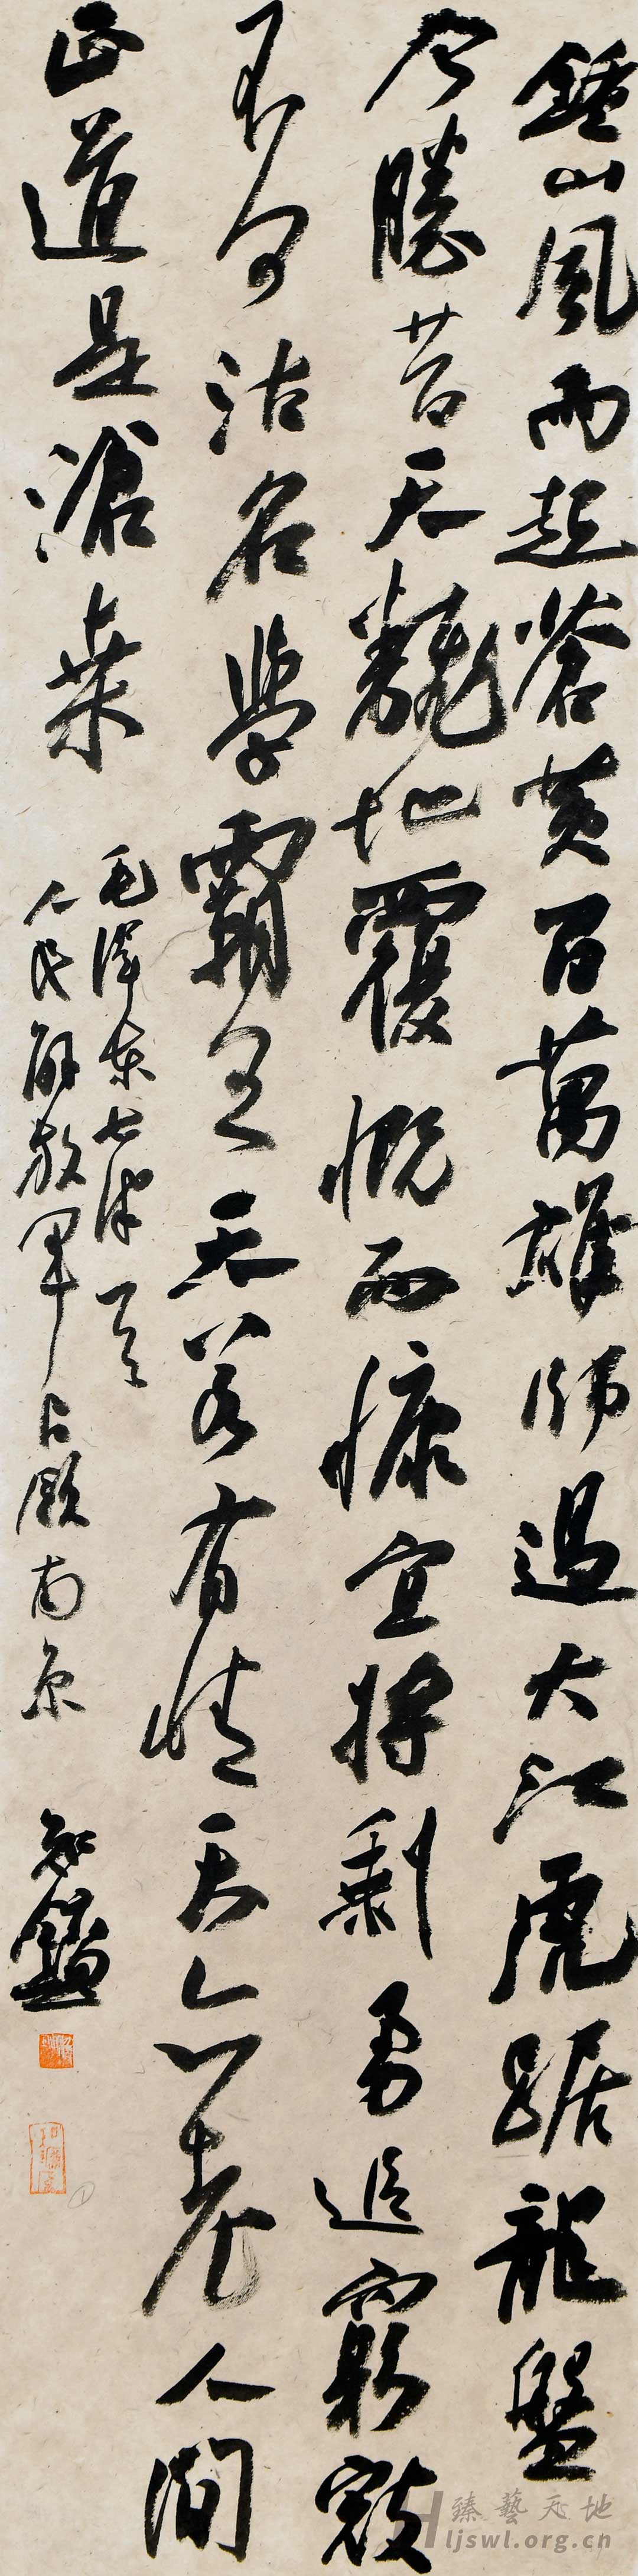 鍾山風雨起蒼黃百萬雄師過大江虎踞龍盤
今勝昔天翻地覆慨而慷宜將剩勇追窮寇
不可沽名學霸王天若有情天亦老人間
正道是滄桑
毛澤東七律一首
人民解放軍占領南京
知鑑
臻藝天地
ljswl.org.cn